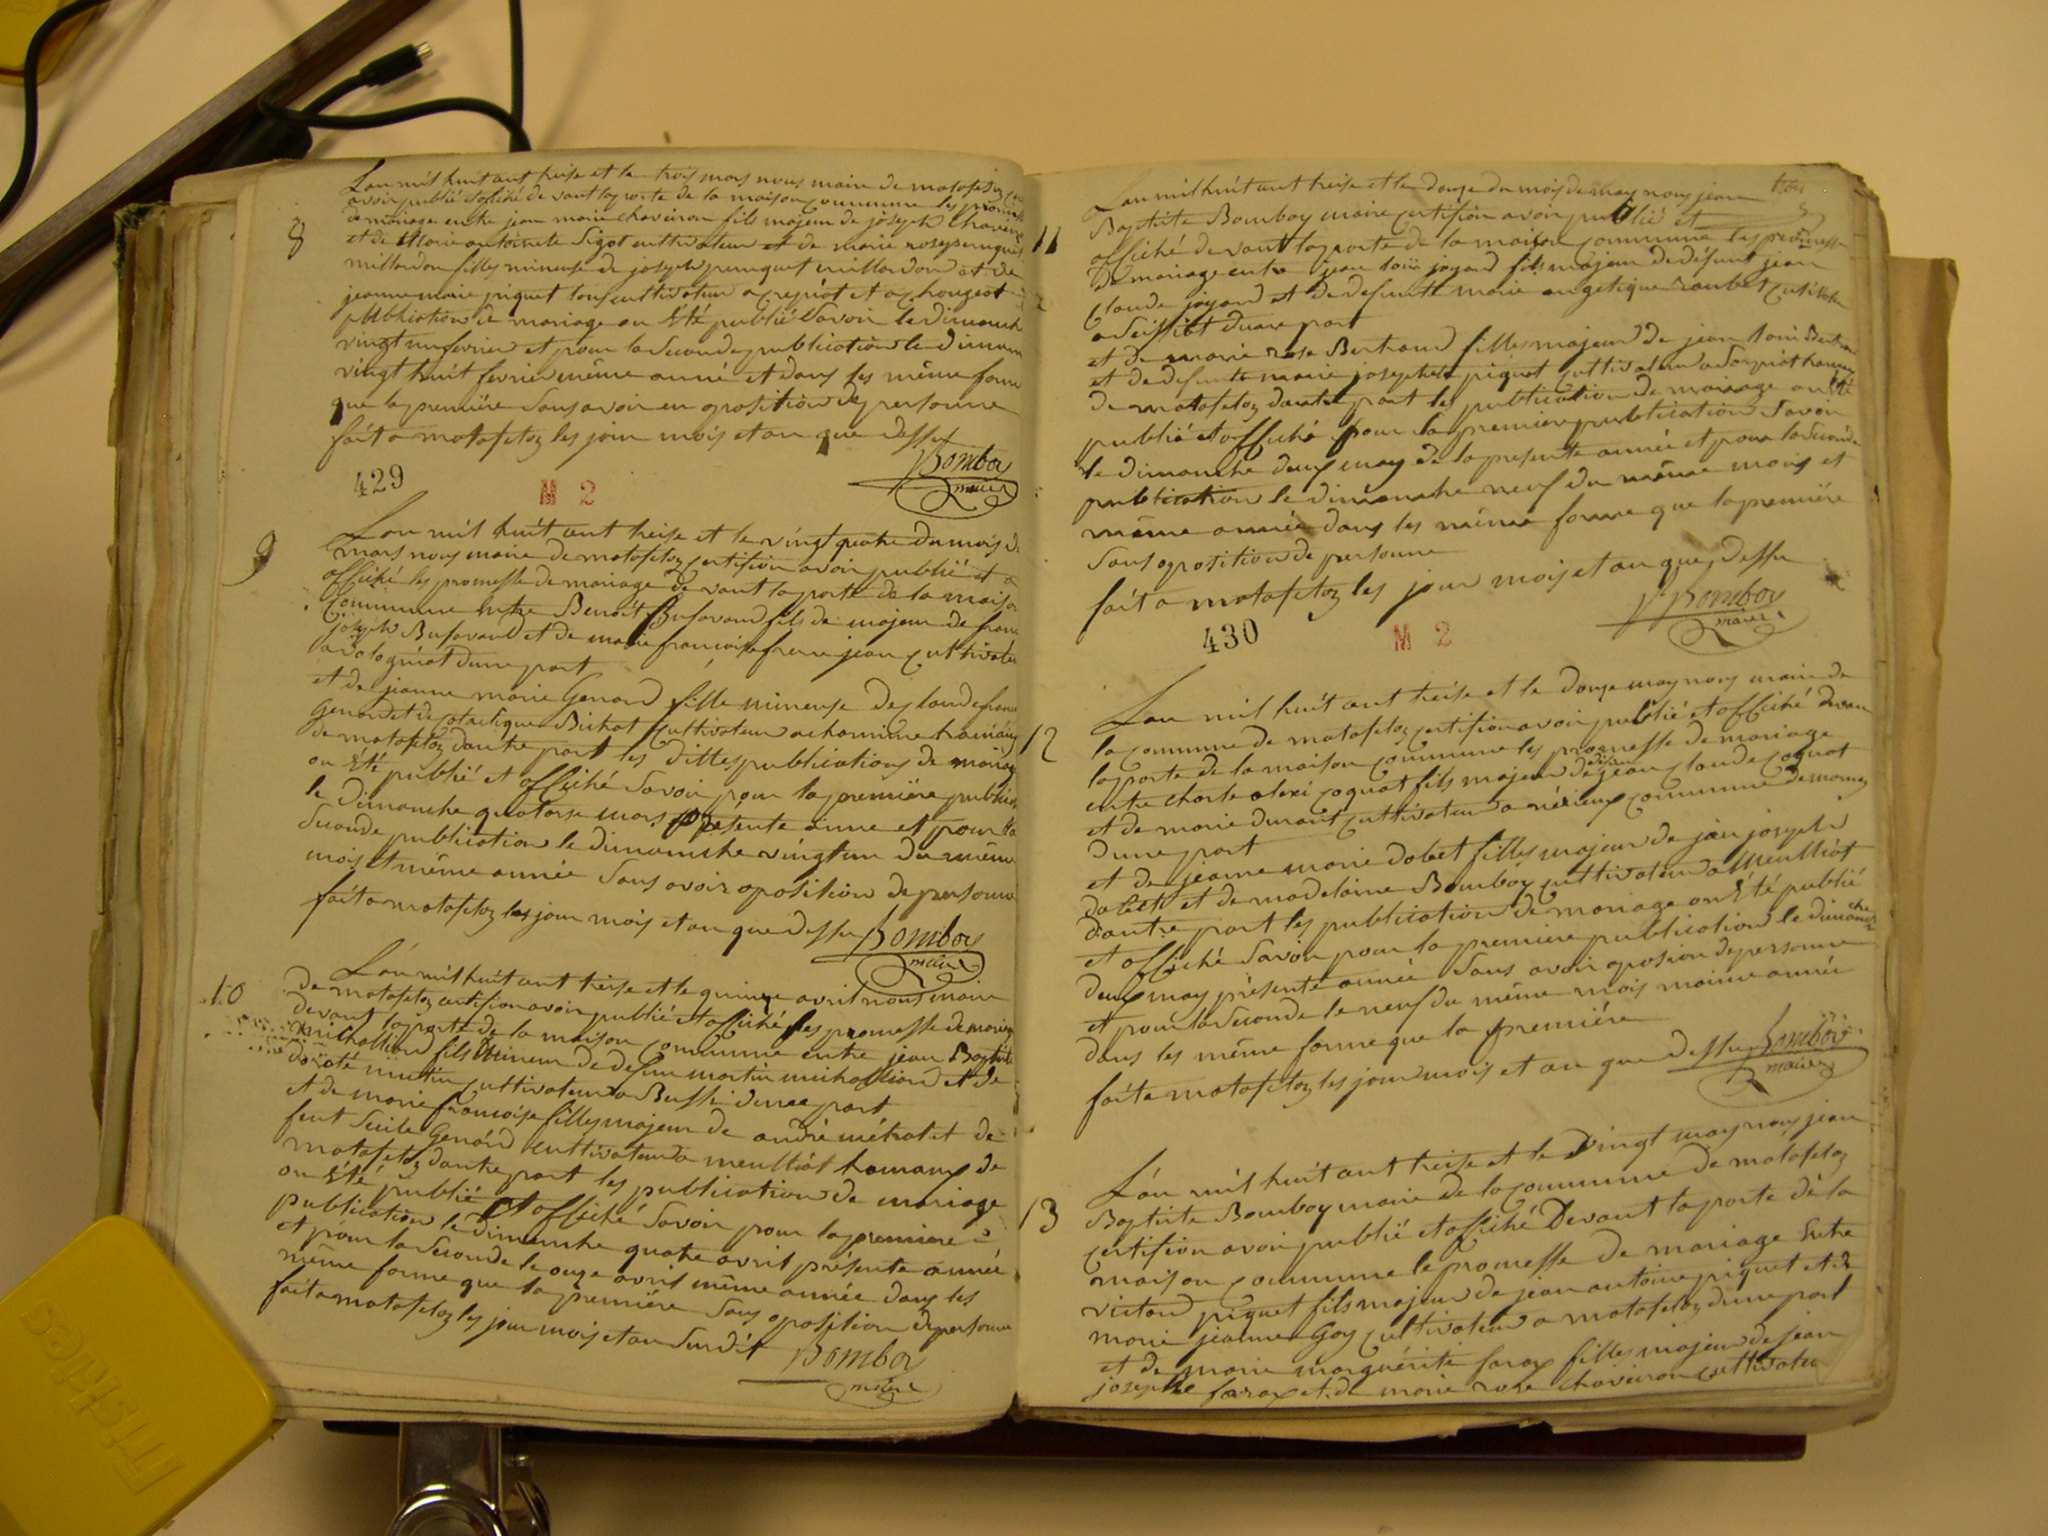 8
L'an mil huit cent treise et le trois mars nous maire de matafelon
avoir publié et affiché devant la porte de la maison commune les promesse
de mariage entre jean marie chaveiron fils majeur de joseph Chaveiron
et de Marie antoinete Sigot cultivateur et de marie rose perruquet
millardon filles mineuse de joseph perruquet millardon et de
jeanne marie piquet tous cultivateur a
publication de mariage on Eté publié Savoir le dimanche
vingt un fevrier et pour la Seconde publication le diman
vingt huit fevrier même anné et dans les même forme
que la premiére Sans avoir eu oposition de personne
fait a matafelon les jour mois et an que dessu
Bomboy
maire
429
M 2
9
L'an mil huit cent treise et le vingt quatre du mois de
mars nous maire de matafelon certifion avoir publié et a
affiché les promesse de mariage devant la porte de la maison
Commune entre Benoit Bufavand fils de majeur de franc
joseph Bufavand et de marie francoise frere jean cultivateur
dune part
et de jeanne marie Genard fille mineuse de Claude franc
Genard et de Bichat cultivateur a hamaux
de matafelon dautre part les dittes publications de mariage
on Eté publié et affiché Savoir pour la premiére public
le dimanche quatorse mars présente anne et pour la
Seconde publication le dimanche vingt un du même
mois et même année Sans avoir oposition de personne
fait a matafelon les jour mois et an que dessu
Bomboy
maire
10
L'an mil huit cent treise et le quinze avril nous maire
de matafelon certifion avoir publié et affiché les promesse de mariage
devant la porte de la maison commune entre jean Baptiste
michallard fils Mineur de defun martin michallard et de
cultivateur a dune part
et de marie francoise filles majeur de andré métral et de
feut Genard cultivateur a meulliat hamaux de
matafelon dautre part les publication de mariage
on Eté publié et affiché Savoir pour la premiere
publication le dimanche quatre avril présente année
et pour la Seconde le onze avril même année dans les
même forme que la premiére Sans oposition de personne
fait a matafelon les jour mois et an Surdit
Bomboy
maire
11
L'an mil huit cent treise et le douze du mois de may nous jean
Baptiste Bomboy maire certifion avoir publié et
affiché devant la porte de la maison commune les promesse
de mariage entre jean loui joyard fils majeur de défunt jean
Claude joyard et de defunte marie angelique cultivateur
a dune part
et de marie rose Bertrand filles majeur de jean loui Bertran
et de defunte marie josephete piquet cultivateur a hamaux
de matafelon dautre part les publication de mariage on Eté
publié et affiché pour la premiere publication Savoir
le dimanche deux may de la presente année et pour la Seconde
publication le dimanche neuf du même mois et
même année dans les même forme que la premiére
Sans oposition de personne
fait a matafelon les jour mois et an que dessu
Bomboy
maire
430
M 2
12
L'an mil huit cent treise et le douze may nous maire de
la commune de matafelon certifion avoir publié et affiché devan
la porte de la maison commune les promesse de mariage
entre charle alexi coquat fils majeur de defun jean claude coquat
et de marie durant cultivateur a commune de
dune part
et de jeanne marie dolet filles majeur de jean joseph
dolet et de madelaine Bomboy cultivateur a Meulliat
dautre part les publication de mariage on Eté publié
et affiché Savoir pour la premiere publication le dimanche
deux may présente année Sans avoir oposion de personne
et pour la Seconde le neuf du même mois maime année
dans les même forme que la premiére
fait a matafelon les jour mois et an que dessu
Bomboy
maire
13
L'an mil huit cent treise et le vingt may nous jean
Baptiste Bomboy maire de la commune de matafelon
certifion avoir publié et affiché Devant la porte de la
maison commune le promesse de mariage Entre
victord piquet fils majeur de jean antoine piquet et de
marie jeanne Goy cultivateur a matafelon dune part
et de marie marguérite faraz filles majeur de jean
josephe faraz et de marie rose chaveiron cultivateu
Tristics